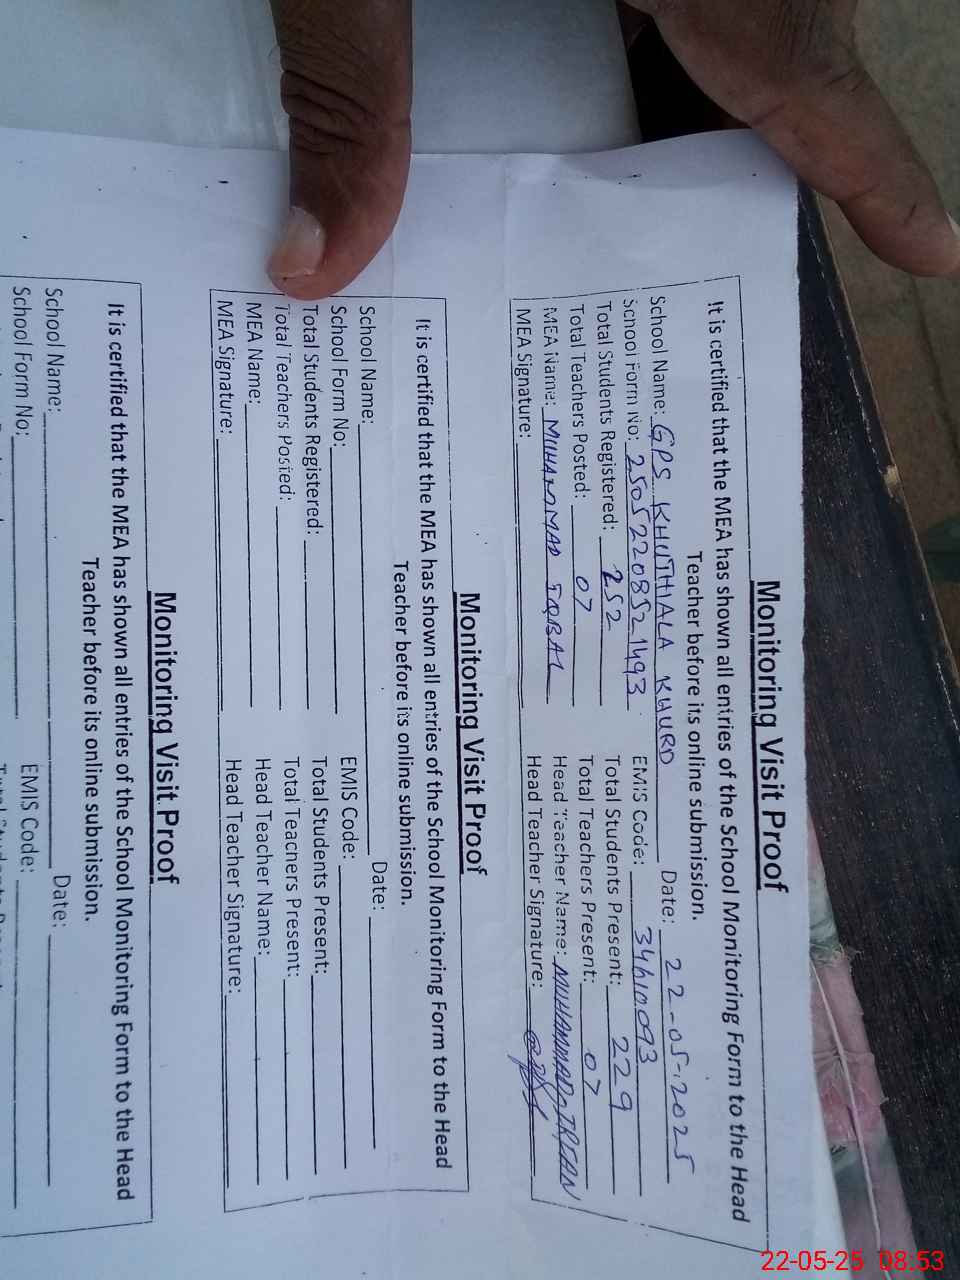 Monitoring Visit Proof
It is certified that the MEA has shown all entries of the School Monitoring Form to the Head
Teacher before its online submission.
School Name: GPS KHUTHIALA KHURD Date: 22-05-2025
School Form No: 25052208521493 EMIS Code: 34610093
Total Students Registered: 252 Total Students Present: 229
Total Teachers Posted: 07 Total Teachers Present: 07
MEA Name: MUHAMMAD IQBAL Head Teacher Name: MUHAMMAD IRFAN
MEA Signature: Head Teacher Signature:
Monitoring Visit Proof
It is certified that the MEA has shown all entries of the School Monitoring Form to the Head
Teacher before its online submission.
School Name: Date:
School Form No: EMIS Code:
Total Students Registered: Total Students Present:
Total Teachers Posted: Total Teachers Present:
MEA Name: Head Teacher Name:
MEA Signature: Head Teacher Signature:
Monitoring Visit Proof
It is certified that the MEA has shown all entries of the School Monitoring Form to the Head
Teacher before its online submission.
School Name: Date:
School Form No: EMIS Code:
22-05-25 08:53